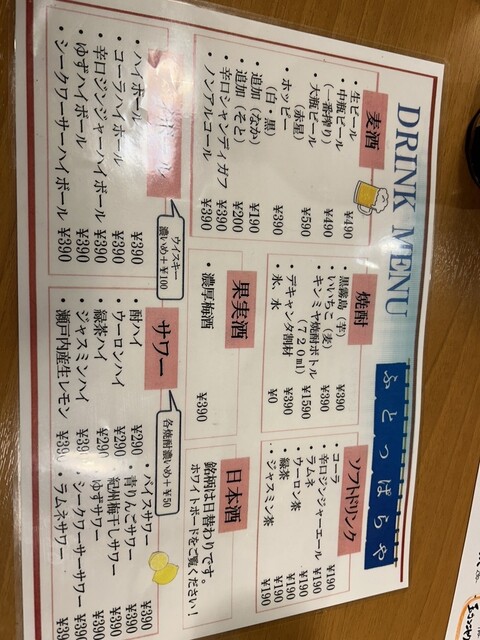 DRINK MENU
ふとっぱらや
麦酒
・生ビール ¥490
・中瓶ビール ¥490
（一番搾り）
・大瓶ビール ¥590
（赤星）
・ホッピー ¥390
（白・黒）
・追加（なか） ¥190
・追加（そと） ¥200
・辛口シャンディガフ ¥390
・ノンアルコール ¥390
焼酎
・黒霧島（芋） ¥390
・いいちこ（麦） ¥390
・キンミヤ焼酎ボトル ¥1590
（720ml）
・デキャンタ割材 ¥390
・氷、水 ¥0
ソフトドリンク
・コーラ ¥190
・辛口ジンジャーエール ¥190
・ラムネ ¥190
・ウーロン茶 ¥190
・緑茶 ¥190
・ジャスミン茶 ¥190
ウイスキー
濃いめ+¥100
・ハイボール ¥390
・コーラハイボール ¥390
・辛口ジンジャーハイボール ¥390
・ゆずハイボール ¥390
・シークワーサーハイボール ¥390
果実酒
・濃厚梅酒 ¥390
日本酒
銘柄は日替わりです。
ホワイトボードをご覧ください！
サワー
各焼酎濃いめ+¥50
・酎ハイ ¥290
・ウーロンハイ ¥290
・緑茶ハイ ¥290
・ジャスミンハイ
・瀬戸内産生レモン
・バイスサワー ¥390
・青りんごサワー ¥390
・紀州梅干しサワー ¥390
・ゆずサワー ¥390
・シークワーサーサワー
・ラムネサワー